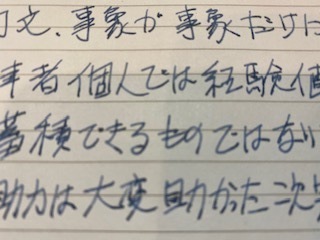 文、事象が事象だけに
者個人では経験値
蓄積できるものではない
助力は大変助かった次